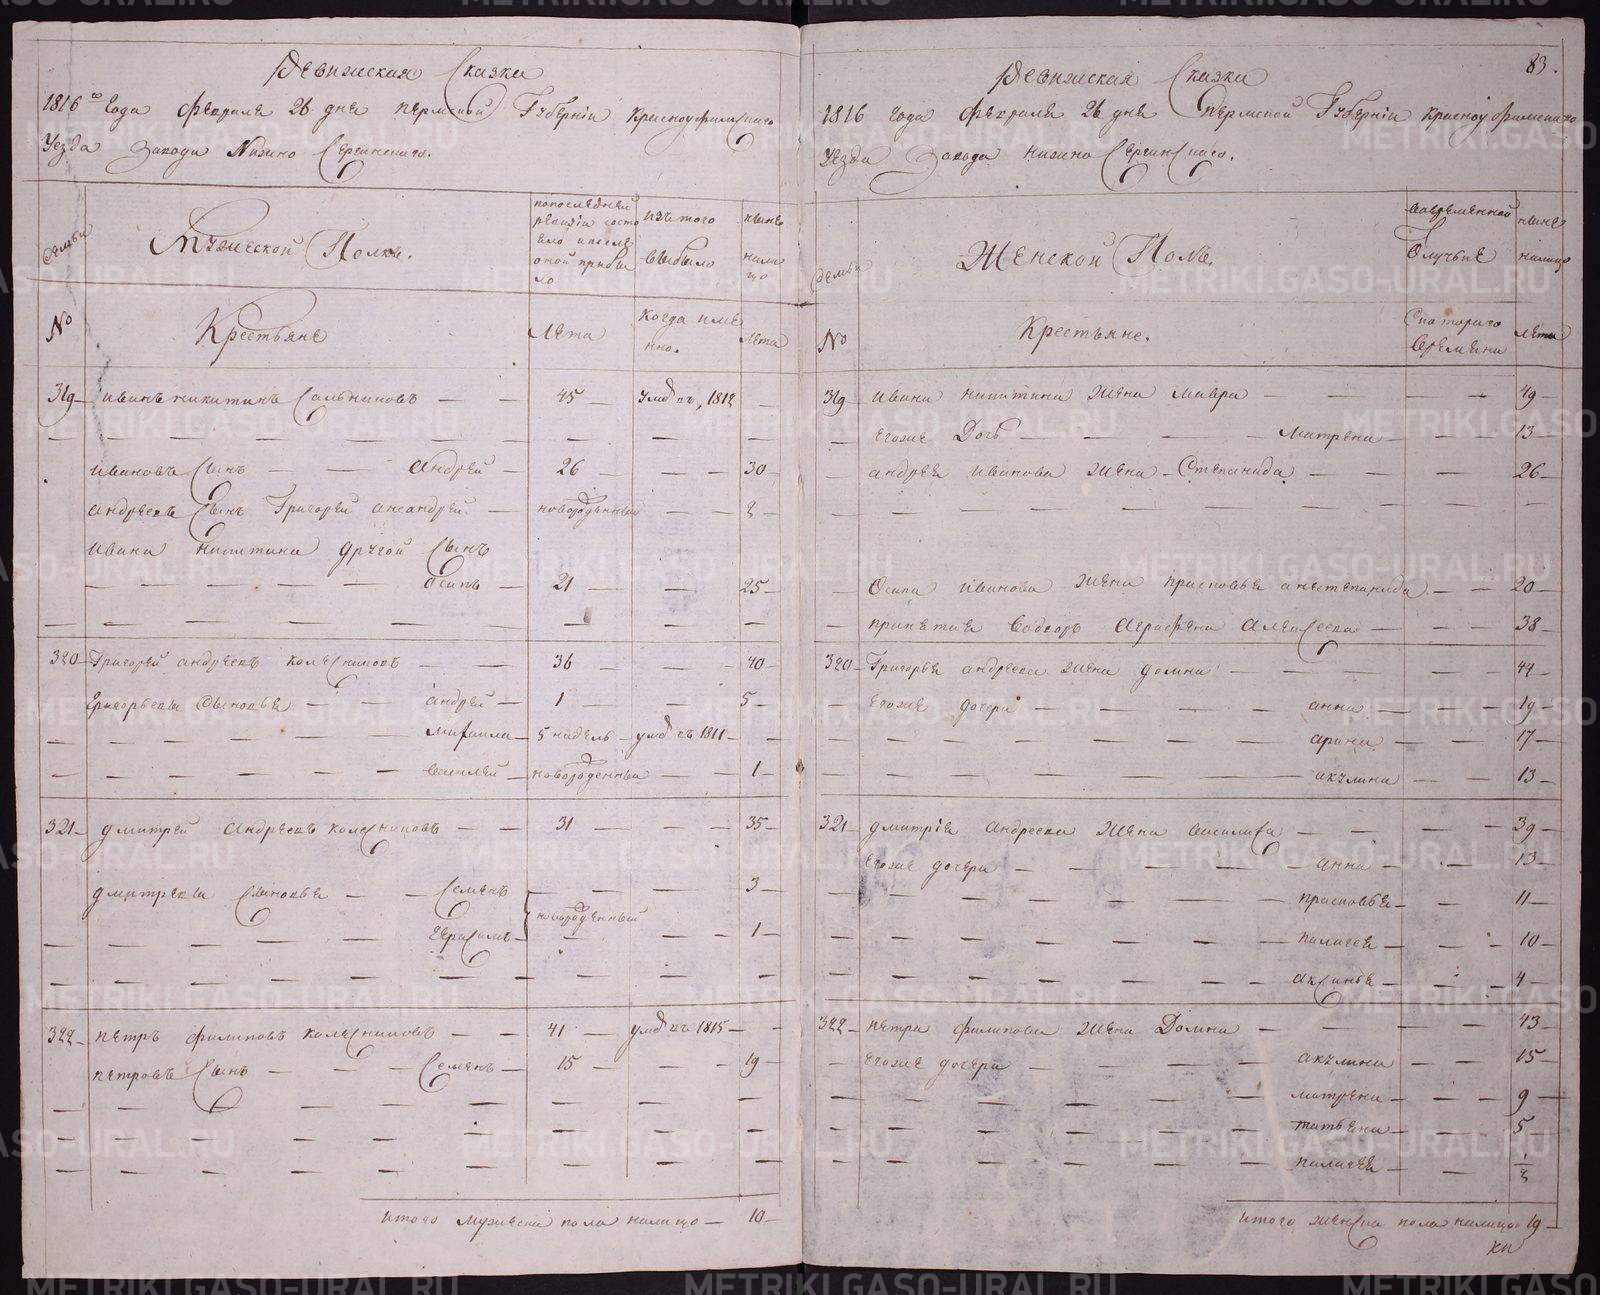 Ревижская Сказка
1816 го Года Февраля 26 дня Пермской Губернiи Красноуфимского
Уезда Завода Нижно Сергинского.
семьи
Мужеской Полъ.
попоследней ревизiи состояло ипосле оной прибыло
изътого выбыло
ныне налицо
№
Крестьяне
Лета
Когда имено.
Лета
319 иванъ никитинъ Сальниковъ 45 умѣ въ 1812
ивановъ Сынъ андрей 26 30
андреевъ Сынъ Григорей анеандрей новорожденный 2
ивана никитина другой Сынъ
осипъ 21 25
320 Григорей андреевъ колесниковъ 36 40
григорьевы Сыновья андрей 1 5
михаила 5 недель умѣ въ 1811
василей новорожденный 1
321 дмитрей андреевъ колесниковъ 31 35
дмитревы Сыновья Семенъ 3
новорожденный
герасимъ 1
322 петръ филиповъ колесниковъ 41 умѣ въ 1815
петровъ Сынъ Семенъ 15 19
итого мужеска пола налицо 10
83.
Ревижская Сказка
1816 года Февраля 26 дня Пермской Губернiи Красноуфимского
Уезда Завода нижно Сергинского.
семьи
Женской Полъ.
вовременной отлучке
ныне налицо
№
Крестьяне.
Скоторого времени
Лета
319 ивана никитина жена мавра 49
егоже Дочь матрена 13
андрея иванова жена Степанида 26
осипа иванова жена прасковья анестепанида 20
принетае Аграфена Алексеева 38
320 Григорья андреева жена домна 44
егоже дочери анна 19
арина 17
акулина 13
321 дмитрiя андреева жена василиса 39
егоже дочери анна 13
прасковья 11
палагея 10
аксинья 4
322 петра филипова жена Домна 43
егоже дочери акулина 15
матрена 9
татьяна 5
палагея 1/2
итого женска пола налицо 19